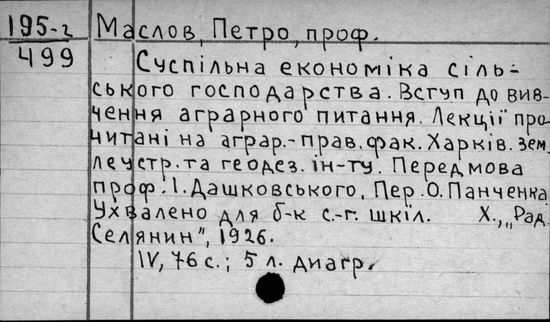 195-г Маслов, Петро, проф.
499 Суспільна економіка сіль-
ського господарства. Вступ до вив-
чення аграрного питання. Лекції про
читані на аграр.-прав. фак. Харків. зем
леустр. та геодез. ін-ту. Передмова
проф. І. Дашковського, Пер. О. Панченка
Ухвалено для б-к с.-г. шкіл. Х., „Рад.
Селянин", 1926.
IV, 76 с.; 5 л. диагр.